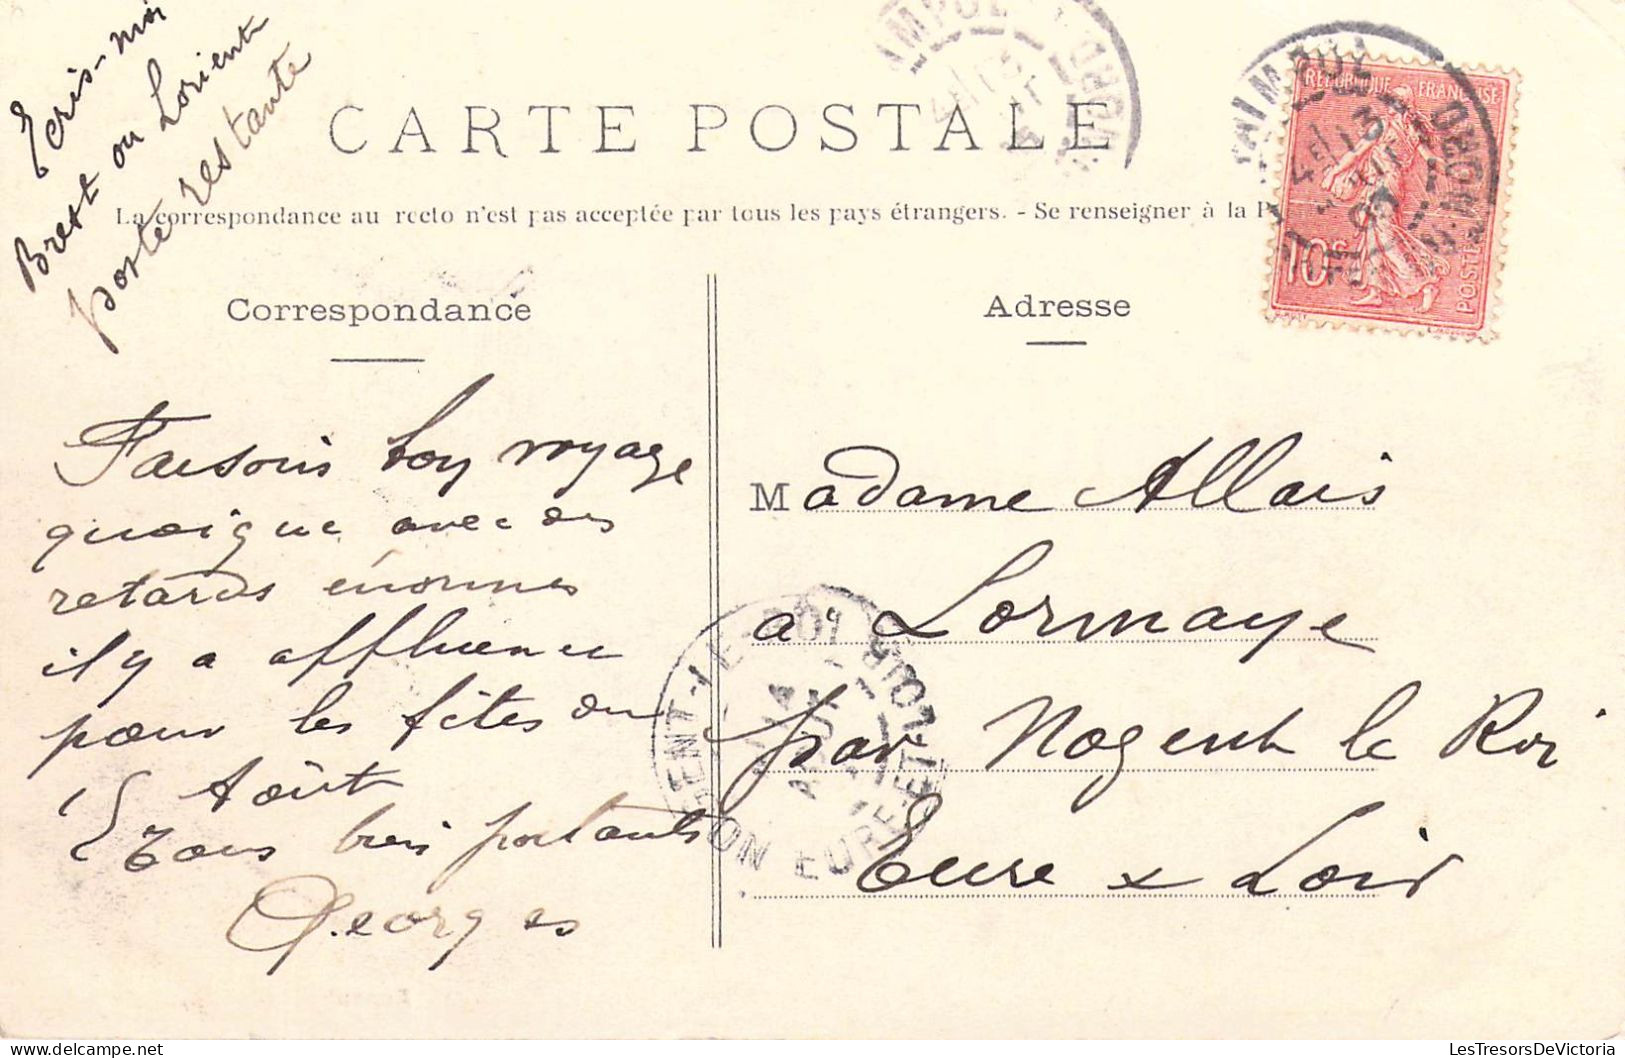 Ecris-moi
Brest ou Lorient
poste restante
CARTE POSTALE
La correspondance au recto n'est pas acceptée par tous les pays étrangers. - Se renseigner à la P
REPUBLIQUE FRANÇAISE
10c
POSTES
Correspondance
Adresse
Faisons bon voyage
quoique avec des
retards énormes
il y a affluence
pour les fêtes du
15 Août
Tous bien portants
Georges
Madame Allais
a Lormaye
par Nogent le Roi
Eure & Loir
LesTresorsDeVictoria